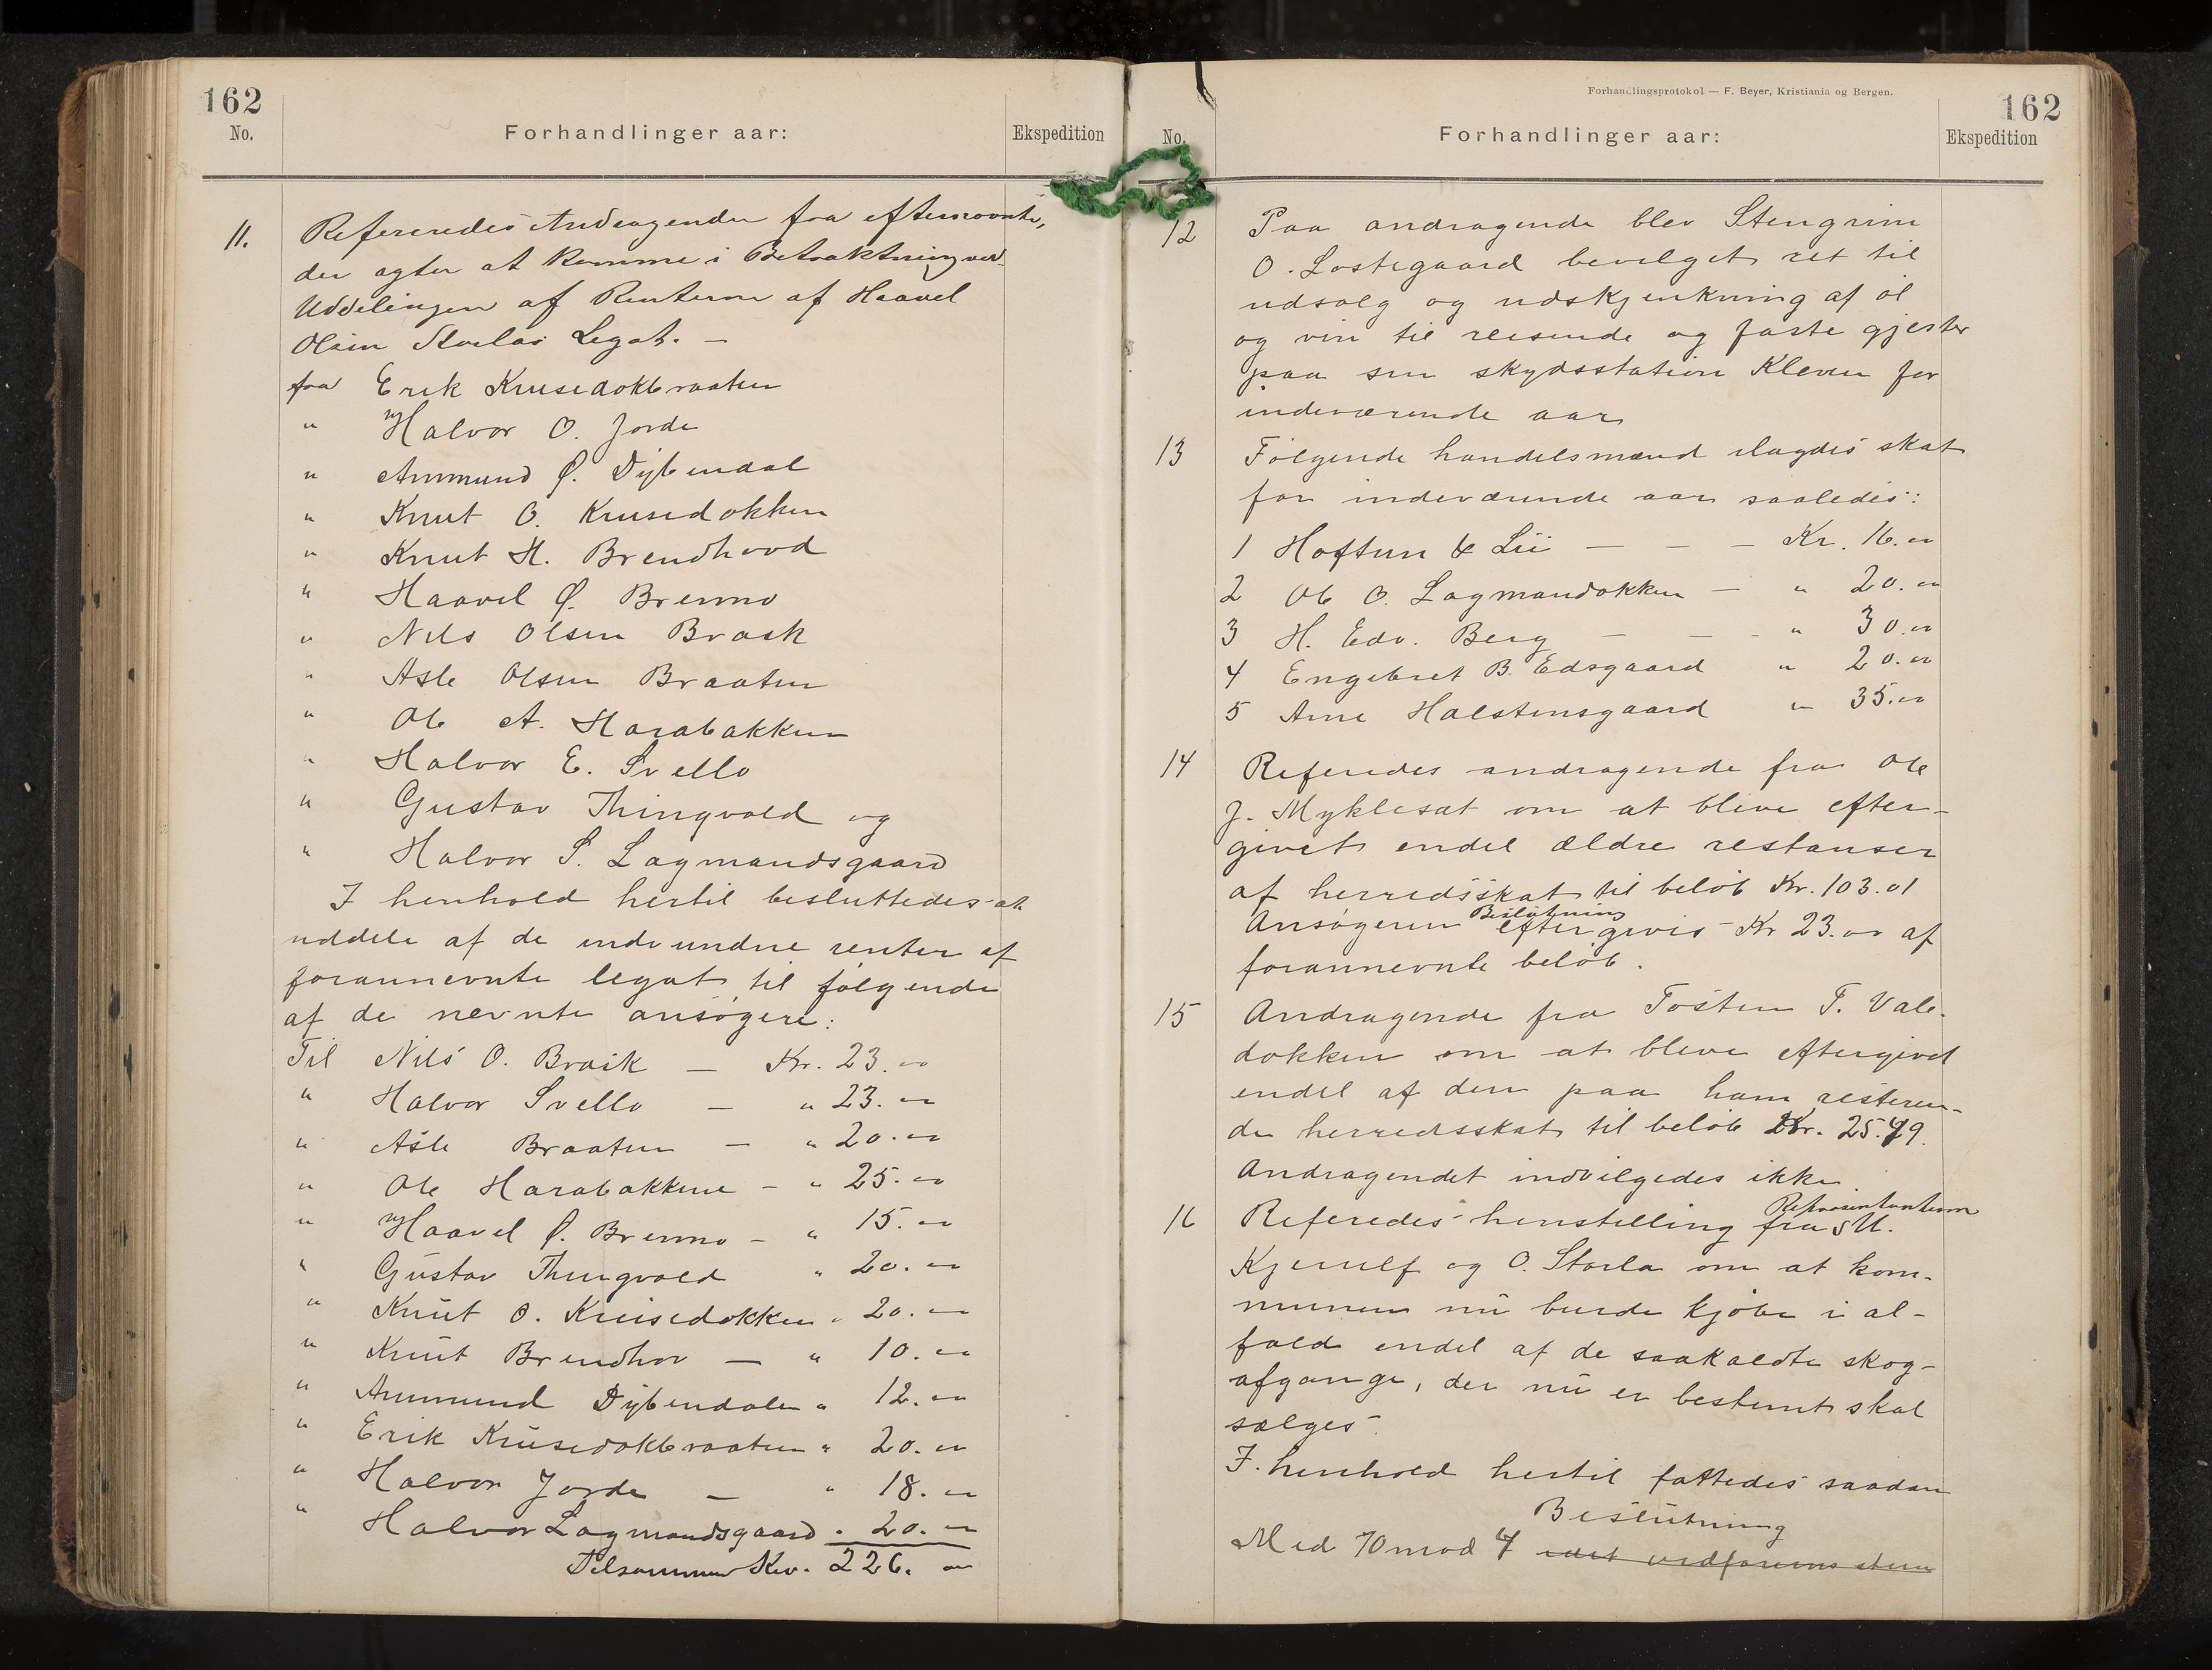 162
No.
Forhandlinger aar:
Ekspedition
11. Refereredes Andragender fra efternævnte,
der agter at komme i Betraktning ved
Uddelingen af Renterne af Haavel
Olsen Storlas Legat. —
fra Erik Krusedokbraaten
" Halvor O. Jorde
" Ammund Ø. Dybendal
" Knut O. Krusedokken
" Knut H. Brendhovd
" Haavel Ø. Brenno
" Nils Olsen Brask
" Asle Olsen Braaten
" Ole A. Harabakken
" Halvor E. Svello
" Gustav Thingvold og
" Halvor S. Lagmandsgaard
I henhold hertil besluttedes at
uddele af de indvundne renter af
forannevnte legat til følgende
af de nevnte ansøgere:
Til Nils O. Brask — Kr. 23. "
" Halvor Svello — " 23. "
" Asle Braaten — " 20. "
" Ole Harabakkene - " 25. "
" Haavel Ø. Brenno - " 15. "
" Gustav Thingvold " 20. "
" Knut O. Krusedokken " 20. "
" Knut Brendhov — " 10. "
" Ammund Dybendalen " 12. "
" Erik Krusedokbraaten " 20. "
" Halvor Jorde — " 18. "
" Halvor Lagmandsgaard " 20. "
Tilsammen Kr. 226. "
Forhandlingsprotokol — F. Beyer, Kristiania og Bergen.
162
No.
Forhandlinger aar:
Ekspedition
12 Paa andragende blev Stengrim
O. Lostegaard bevilget ret til
udsalg og udskjenkning af øl
og vin til reisende og faste gjester
paa sin skydsstation Kleven for
indeværende aar
13 Følgende handelsmænd ilagdes skat
for indeværende aar saaledes:
1 Hoftun & Lii — — — Kr. 16. "
2 Ole O. Lagmandokken — " 20. "
3 H. Edv. Berg — — - " 30. "
4 Engebret B. Edsgaard " 20. "
5 Arne Halstensgaard " 35. "
14 Referedes andragende fra Ole
J. Myklesat om at blive efter-
givet endel ældre restanser
af herredsskat til beløb Kr. 103.01
Beslutning
Ansøgeren eftergives Kr 23. " af
forannevnte beløb.
15 Andragende fra Tosten T. Vale-
dokken om at blive eftergivet
endel af den paa ham resteren-
de herredsskat til beløb Kr. 25.79.
Andragendet indvilgedes ikke.
16 Referedes henstilling fra Repræsentanterne M.
Kjerulf og O. Storla om at kom-
munen nu burde kjøbe i al-
fald endel af de saakaldte skog-
afgange, der nu er bestemt skal
sælges.
I henhold hertil fattedes saadan
Beslutning
Med 10 mod 4 idet ordførerens stem